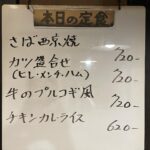 本日の定食
さば西京焼 720-
カツ盛合せ
(ヒレ・メンチ・ハム) 720-
牛のプルコギ風 720-
チキンカレーライス 620-